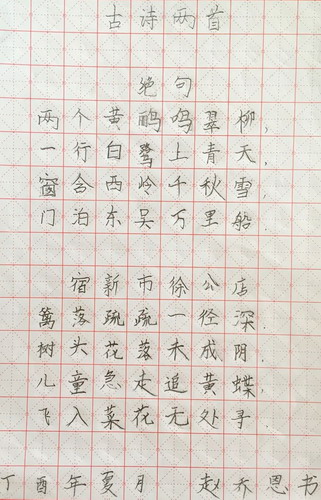 古诗两首
绝句
两个黄鹂鸣翠柳,
一行白鹭上青天,
窗含西岭千秋雪,
门泊东吴万里船.
宿新市徐公店
篱落疏疏一径深.
树头花落未成阴.
儿童急走追黄蝶,
飞入菜花无处寻
丁酉年夏月 赵乔恩书